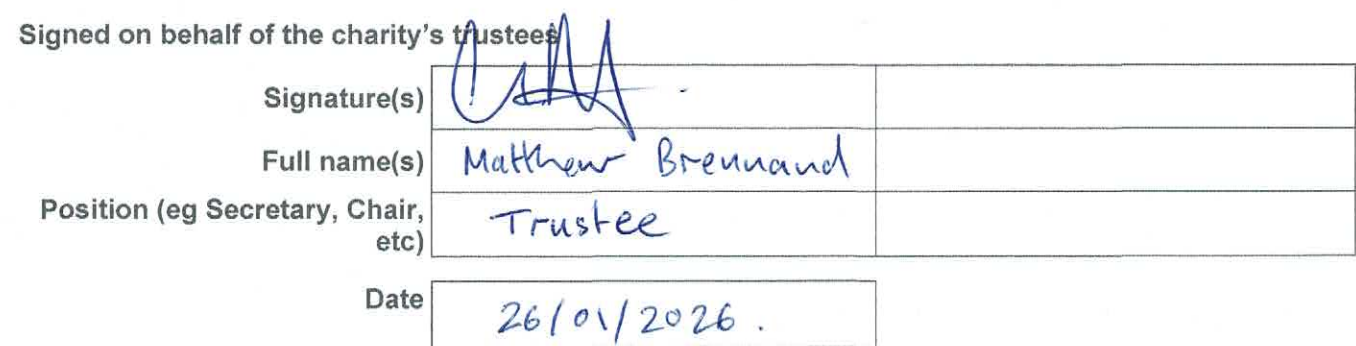 Signed on behalf of the charity's trustees
Signature(s)
Full name(s) Matthew Brennand
Position (eg Secretary, Chair, etc) Trustee
Date 26/01/2026.